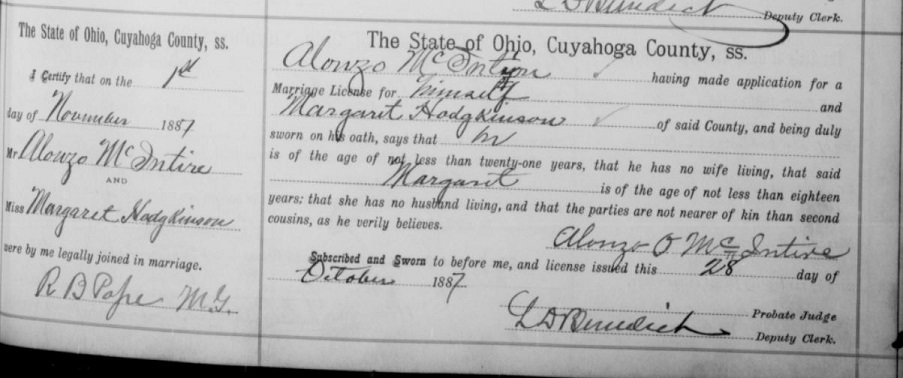 L D Benedict
Deputy Clerk.
The State of Ohio, Cuyahoga County, ss.
I Certify that on the 1st
day of November 1887
Mr Alonzo McIntire
AND
Miss Margaret Hodgkinson
were by me legally joined in marriage.
R B Pope M.G.
The State of Ohio, Cuyahoga County, ss.
Alonzo McIntire having made application for a
Marriage License for himself and
Margaret Hodgkinson of said County, and being duly
sworn on his oath, says that he
is of the age of not less than twenty-one years, that he has no wife living, that said
Margaret is of the age of not less than eighteen
years; that she has no husband living, and that the parties are not nearer of kin than second
cousins, as he verily believes.
Alonzo O McIntire
Subscribed and Sworn to before me, and license issued this 28 day of
October 1887
Probate Judge
L D Benedict Deputy Clerk.